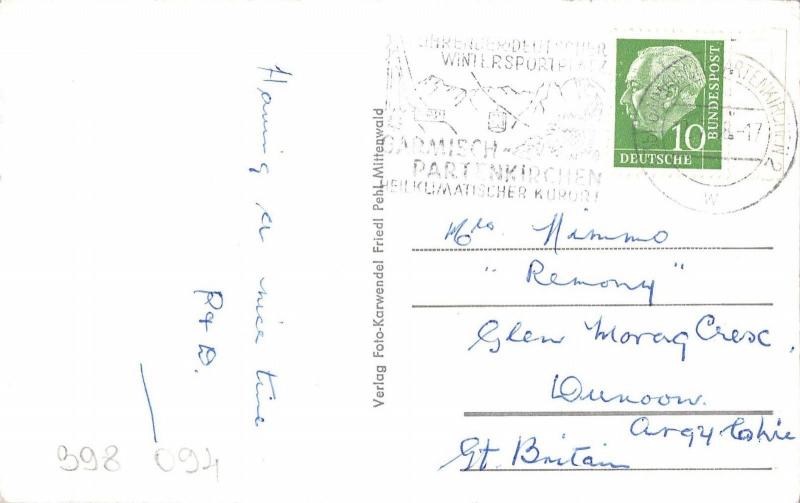 Having a nice time
R & D.
398 094
Verlag Foto-Karwendel Friedl Pehl-Mittenwald
FÜHRENDER DEUTSCHER
WINTERSPORTPLATZ
GARMISCH-
PARTENKIRCHEN
HEILKLIMATISCHER KURORT
10
BUNDESPOST
DEUTSCHE
PARTENKIRCHEN 2
-17
w
Mrs Nimmo
"Remony"
Glen Morag Cresc,
Dunoon.
Argyleshire
Gt. Britain